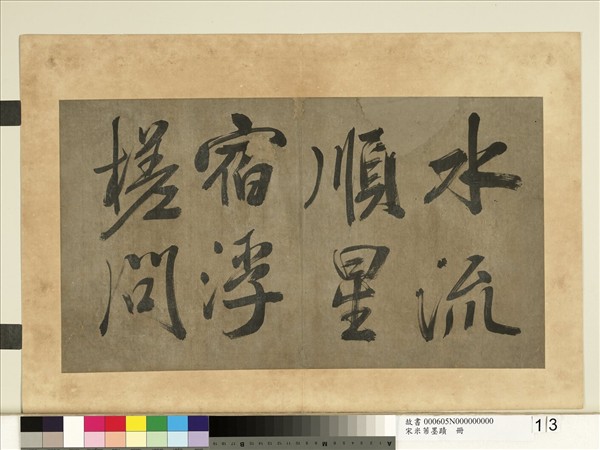 水流
順星
宿浮
槎問
故書 000605N000000000
宋米芾墨蹟 冊
13